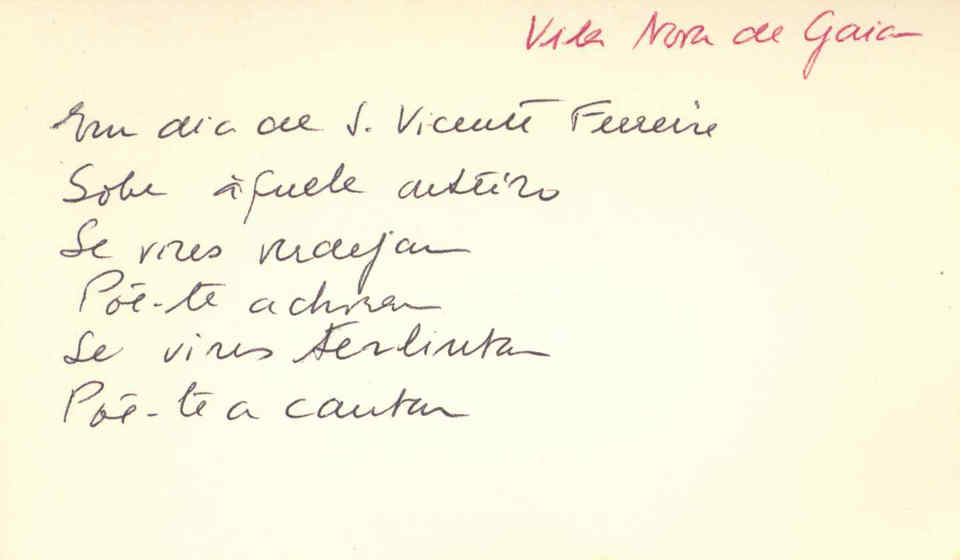 Vila Nova de Gaia
Em dia de S. Vicente Ferreira
Sobe àquele outeiro
Se vires verdejar
Põe-te a chorar
Se vires terlintar
Põe-te a cantar